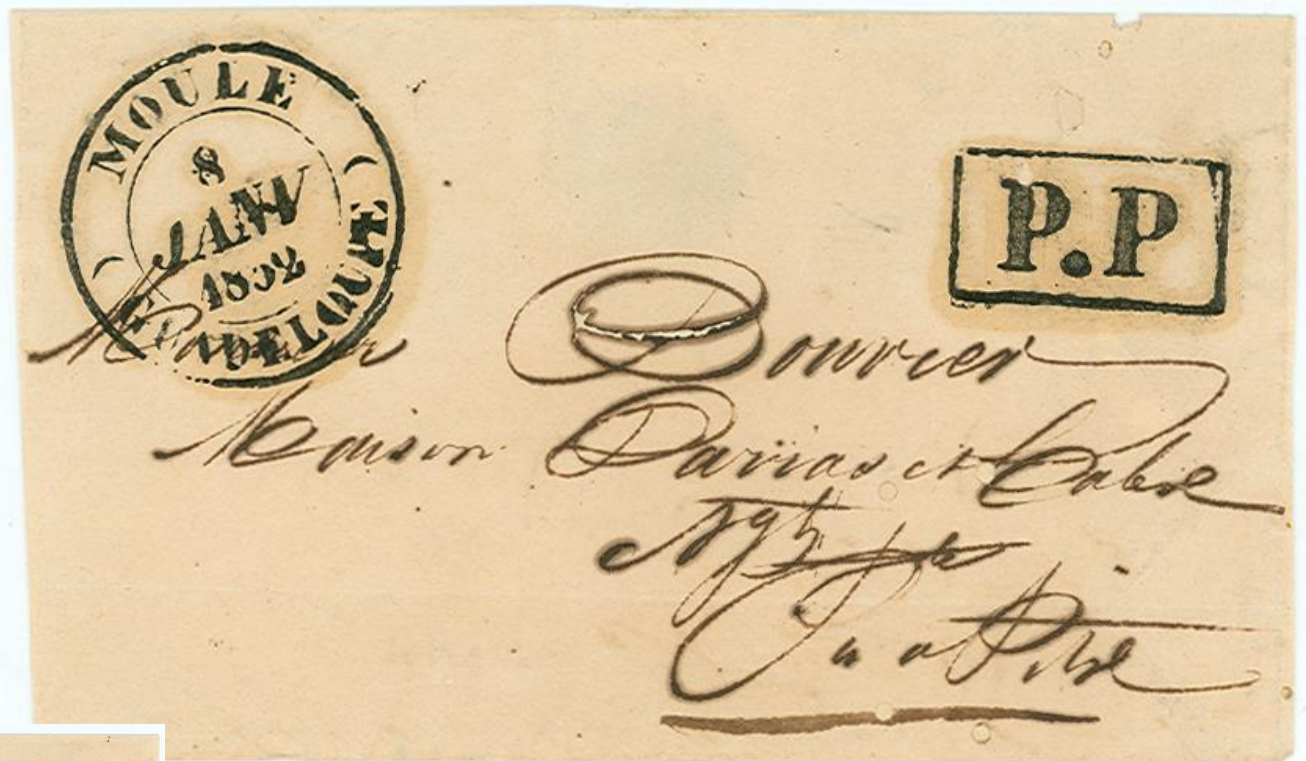 MOULE
8
JANV
1852
GUADELOUPE
P.P
Monsieur Bouvier
Maison Darias et Cabre
Ngts
P. à Pitre